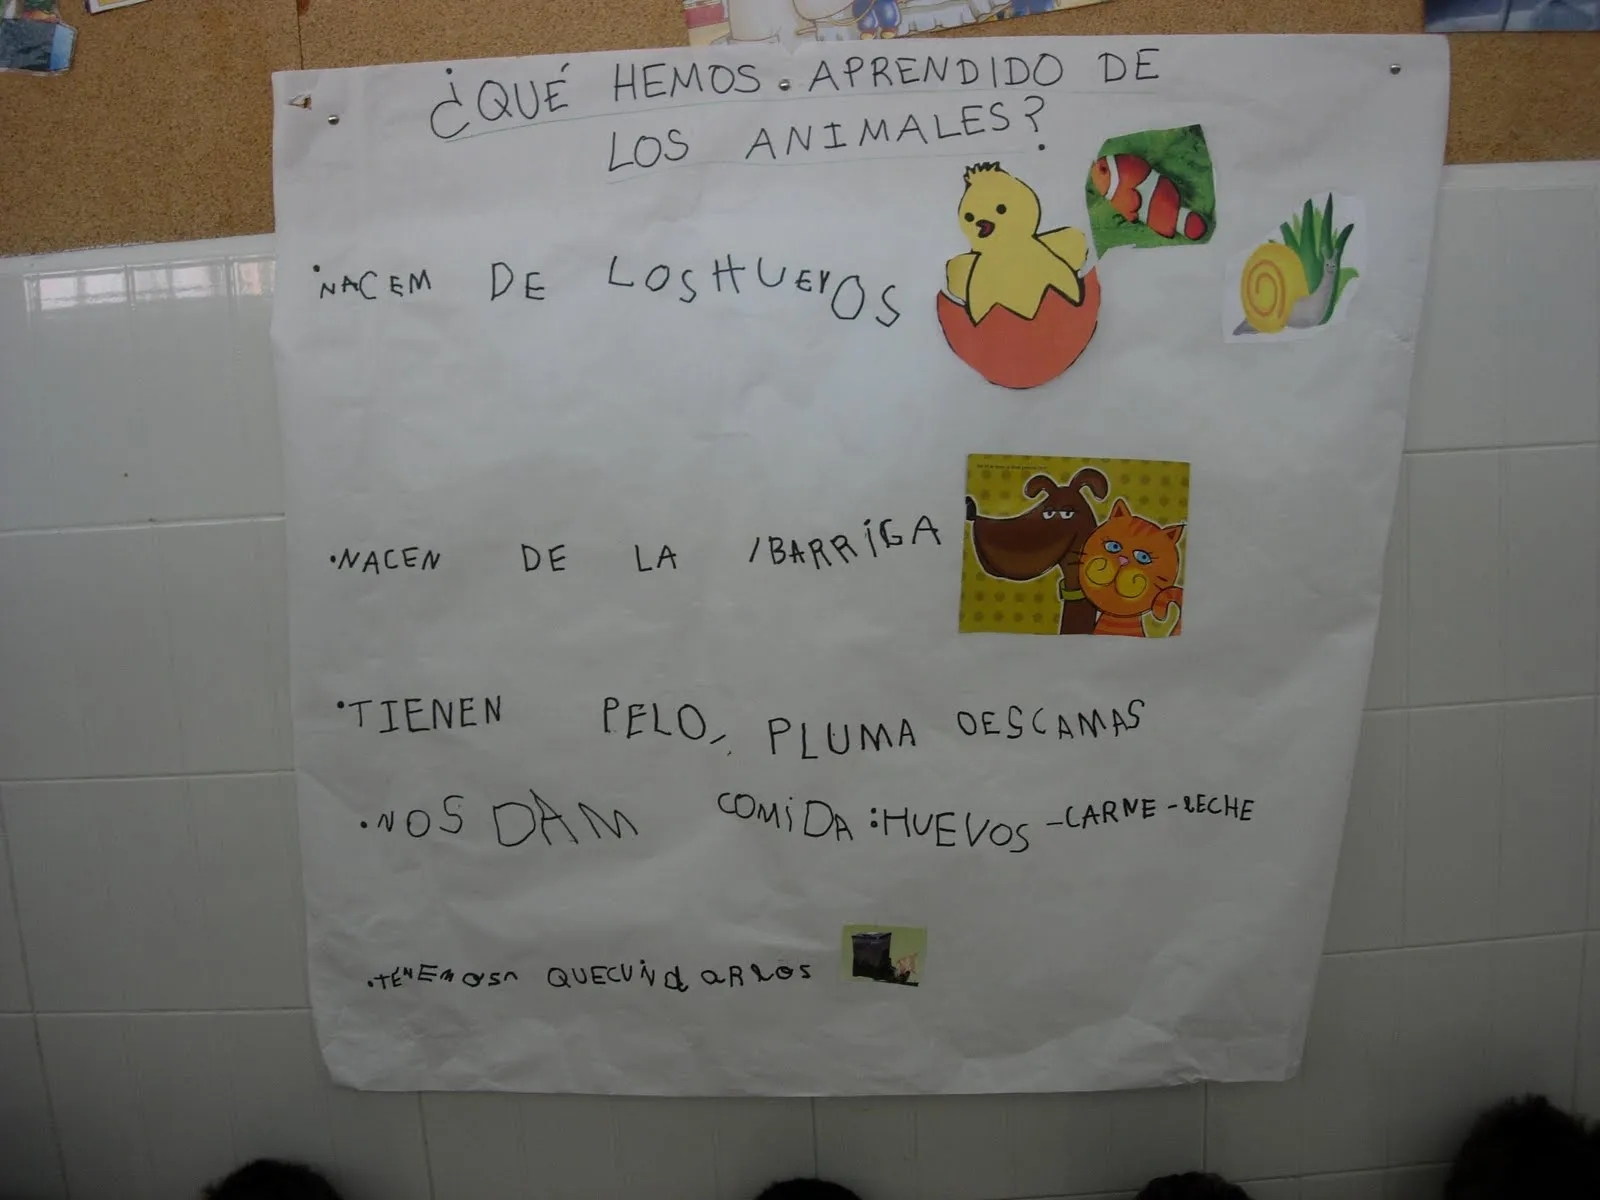 ¿QUÉ HEMOS APRENDIDO DE
LOS ANIMALES?
·NACEM DE LOS HUEVOS
·NACEN DE LA BARRIGA
·TIENEN PELO, PLUMA OESCAMAS
·NOS DAM COMIDA:HUEVOS-CARNE-LECHE
·TENEMOSN QUECUIDARLOS